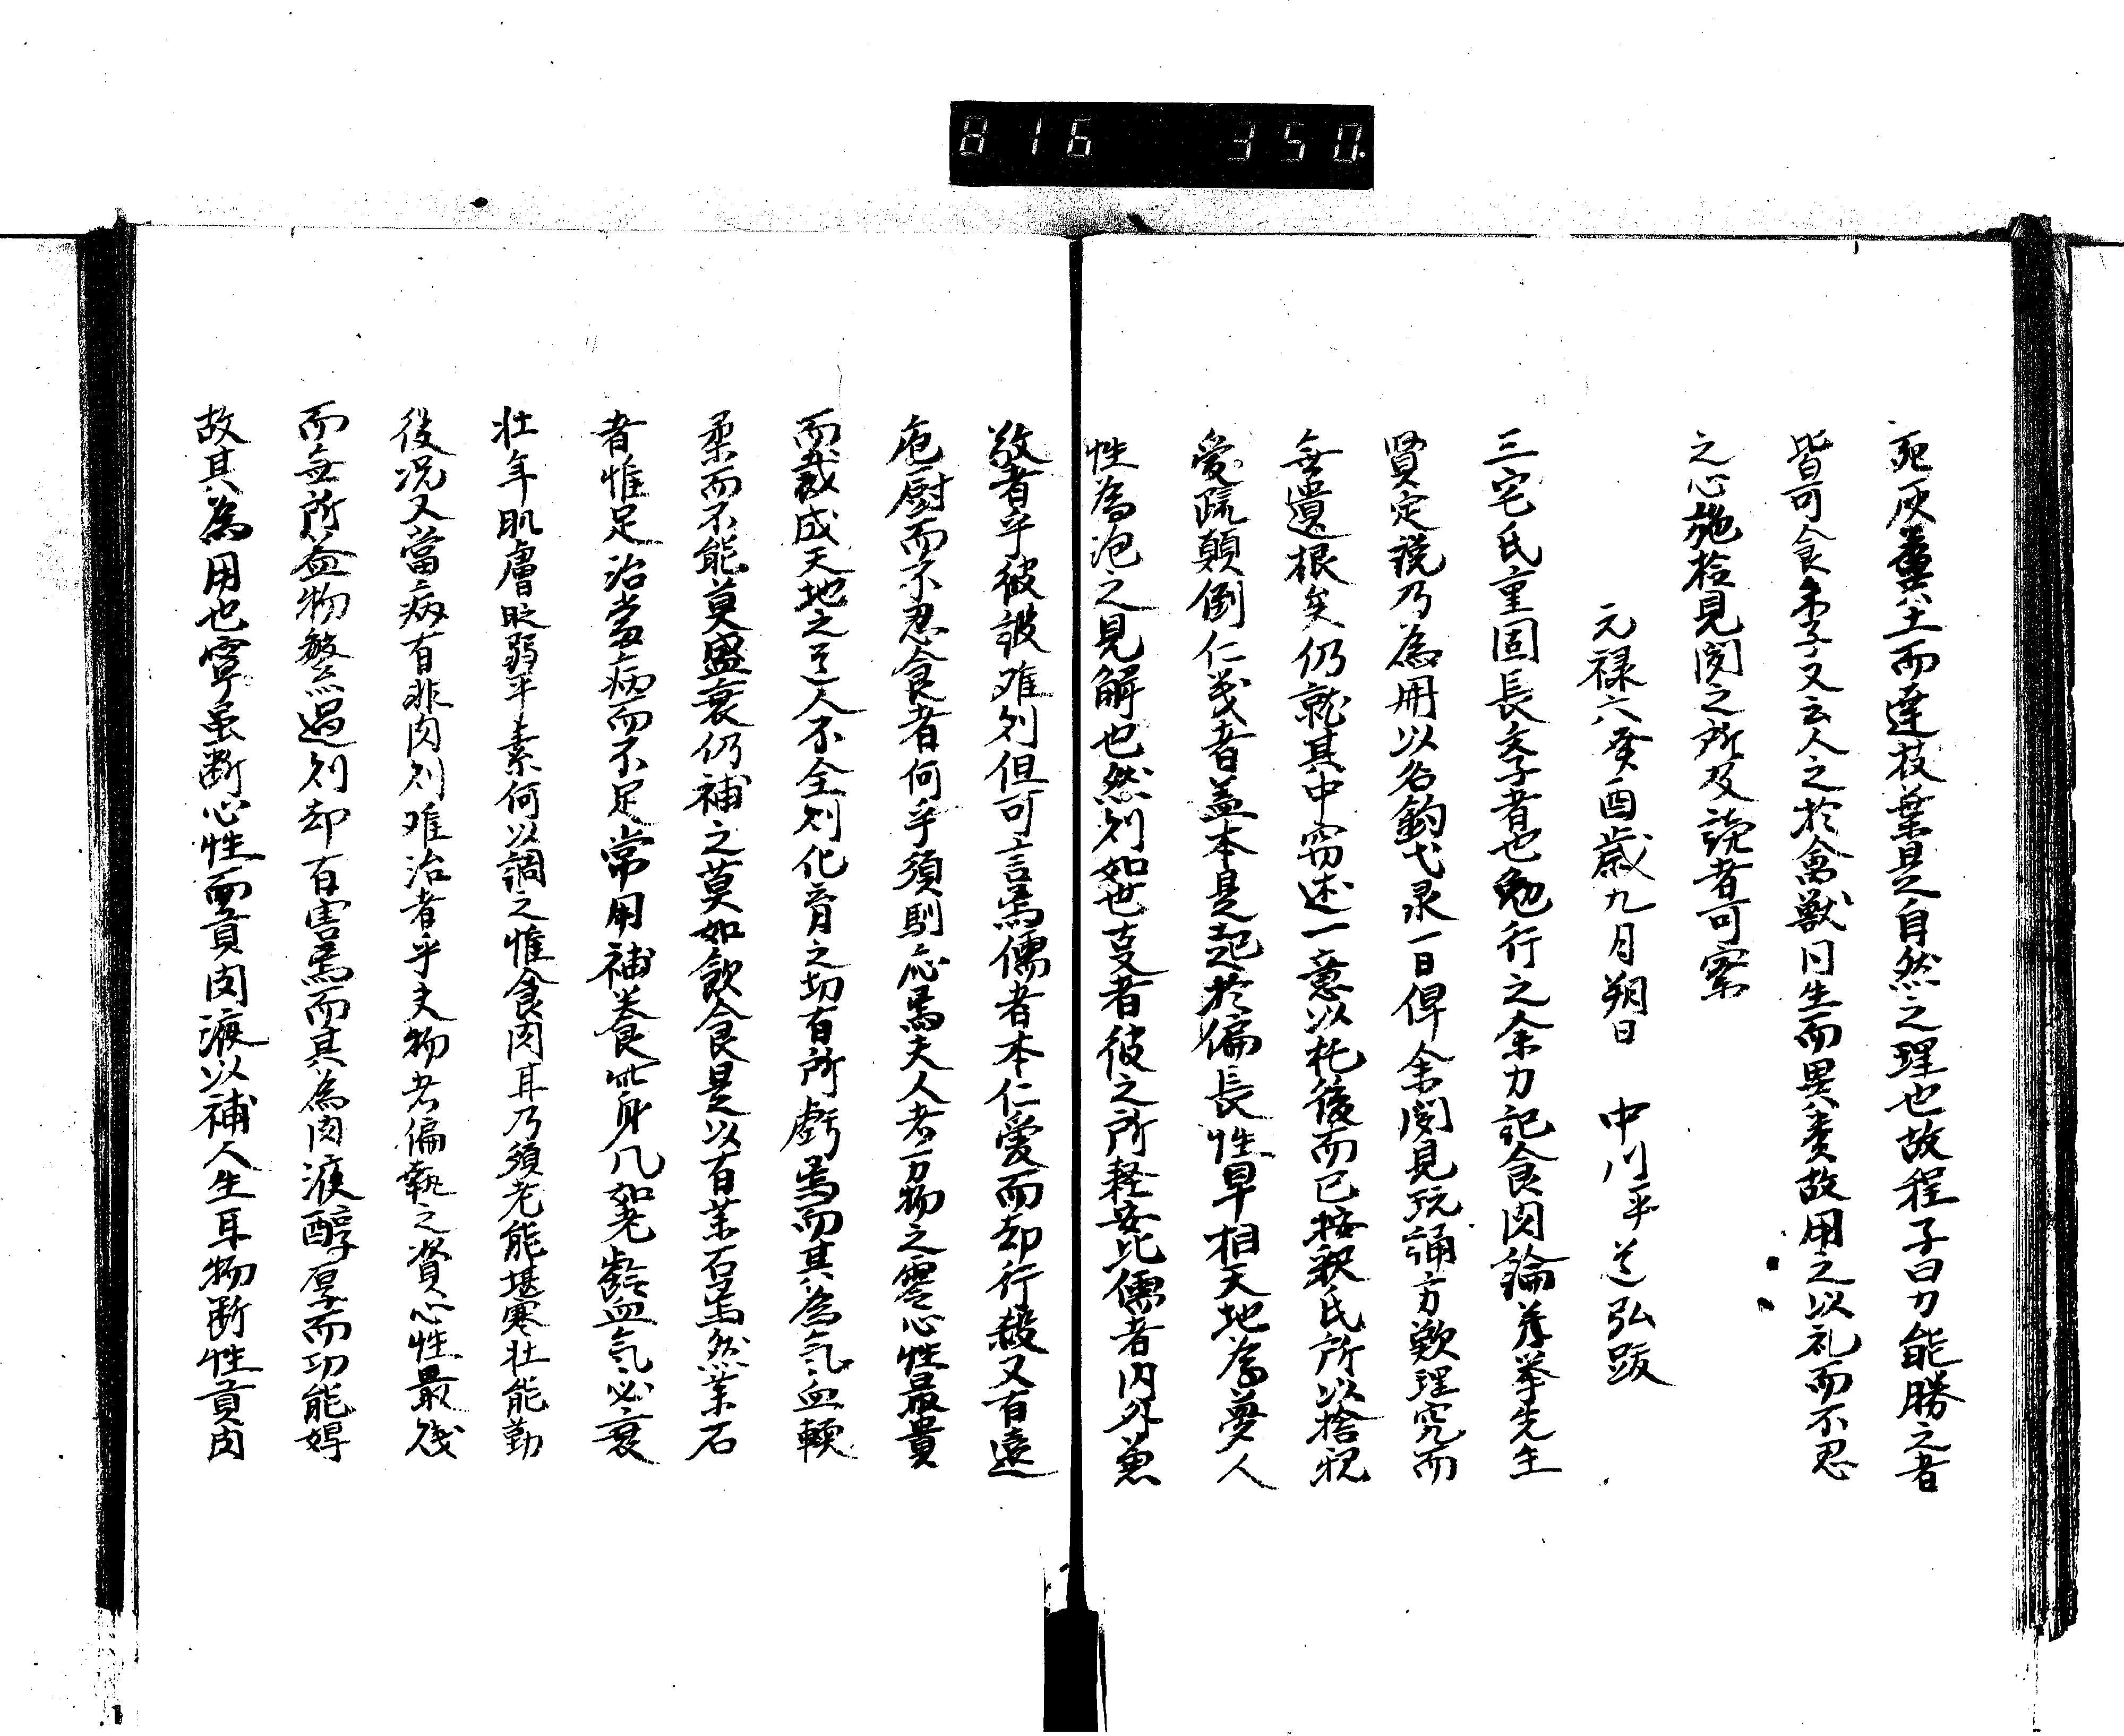 816 350.
死灰糞土而達枝葉是自然之理也故程子曰力能勝之者
皆可食朱子又云人之於禽獣同生而異類故用之以礼而不忍
之心施於見聞之所及読者可察
元禄六癸酉歳九月朔日 中川平道弘跋
三宅氏重固長文子者也勉行之余力記食肉論并挙先生
賢定説乃為冊以名釣弋录一日俾余閲見玩誦方歎理究而
無遺根矣仍就其中窃述一意以托後而已按釈氏所以捨親
愛疏顛倒仁義者蓋本是起於偏長性早相天地為夢人
性為泡之見解也然則如世支者彼之所軽安比儒者内外兼
敬者乎彼設难則但可言焉儒者本仁愛而却行殺又有遠
庖厨而不忍食者何乎須馴応焉夫人者万物之霊心性最貴
而裁成天地之道人不全則化育之功有所虧焉而其為气血軟
柔而不能莫盛衰仍補之莫如飲食是以有薬石焉然薬石
者惟足治当病而不足常用補養此身凡如老齢血気必衰
壮年肌膚貶弱平素何以調之惟食肉耳乃須老能堪寒壮能勤
役况又當病有非肉則难治者乎夫物者偏執之質心性最賎
而無所益物弊過則却有害焉而其為肉液醇厚而功能得
故其為用也寧虽断心性而貢肉液以補人生耳物断性貢肉